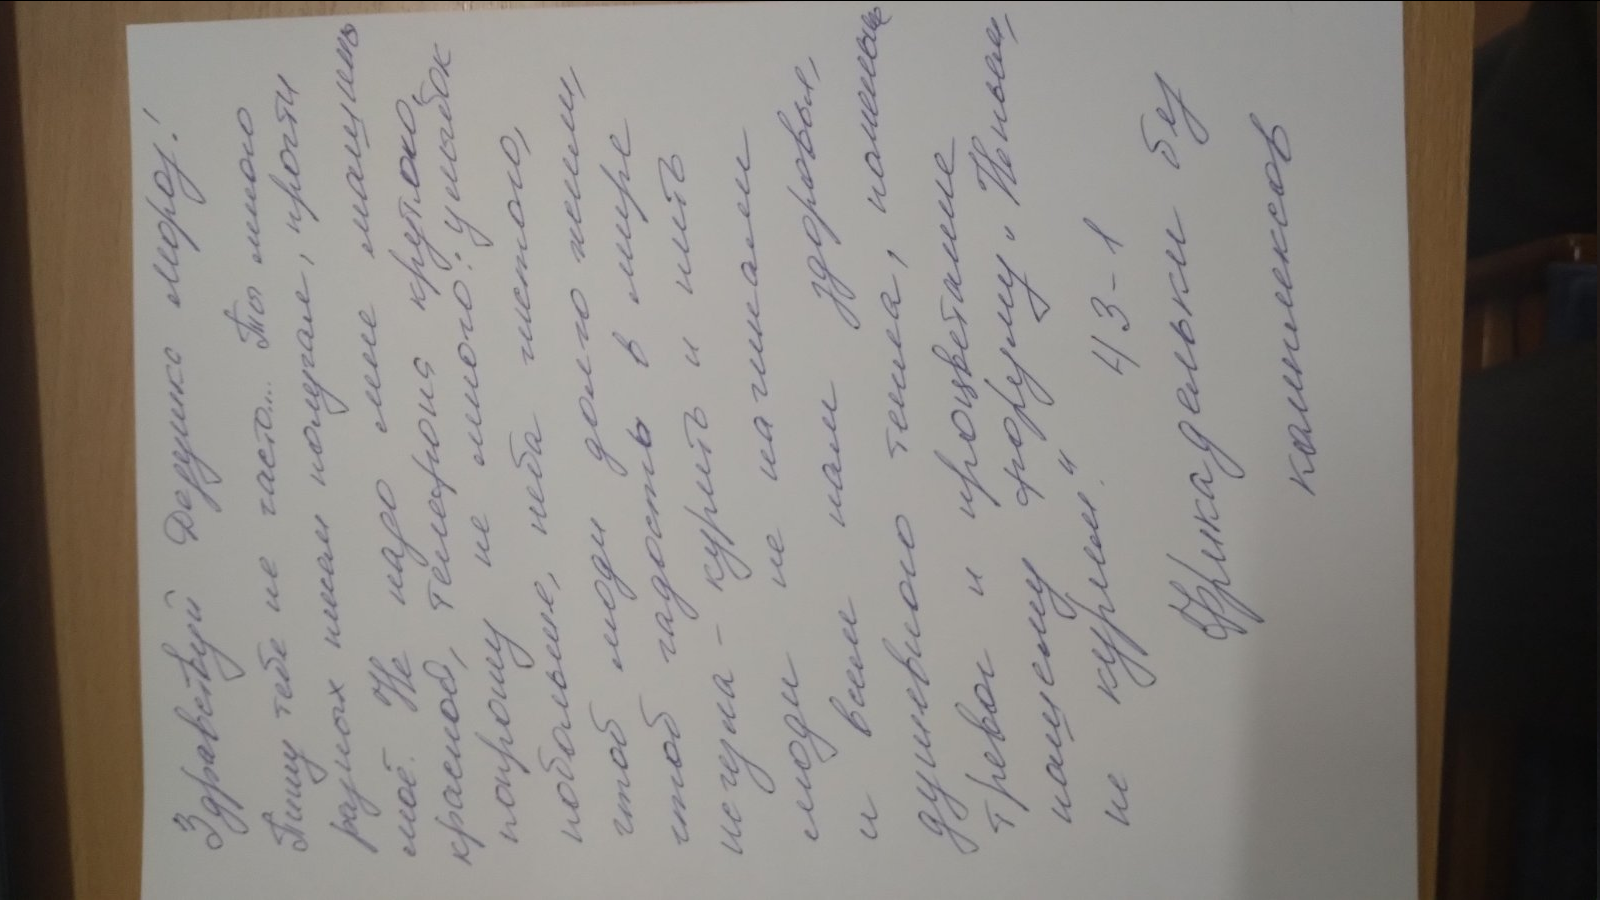 Здравствуй Дедушка Мороз!
Пишу тебе не часто... Ты много
разных писем получаешь, прости
моё. Не надо мне машины
красной, телефона крутого,
попрошу не много: улыбок
побольше, неба чистого,
чтоб люди долго жили,
чтоб гадость в мире
исчезла - курить и пить
люди не начинали
и всем нам здоровья,
душевного тепла, поменьше
тревог и процветание
нашему форуму "Не пьем,
не курим." 43-1
Фрикадельки без
комплексов